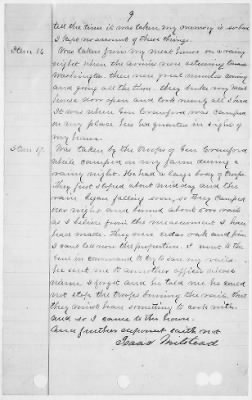 9
tell the time it was taken my memory is so bad
I kept no account of these things.
Item 16. Was taken from my meat house on a rainy
night when the armies were returning towards
Washington there were great numbers coming
and going all the time. they broke my meat
house door open and took nearly all I had
It was when Gen Crawford was camped
on my place his head quarters in sight of
my house.
Item 17. Was taken by the troops of Gen Crawford
while camped on my farm during a
rainy night. He had a large body of troops
They just stopped about mid day and the
rain began falling soon, so they camped
over night and burned about rails
as I from the measurement I
had made. They were cedar oak and pine
I cant tell now the proportion. I went to the
Genl in command to try to save my rails.
he sent me to another officer whose
name I forget and he told me he could
not stop the troops burning the rails that
they must have something to cook with
and so I came to the house.
And further deponent saith not
Isaac Milstead